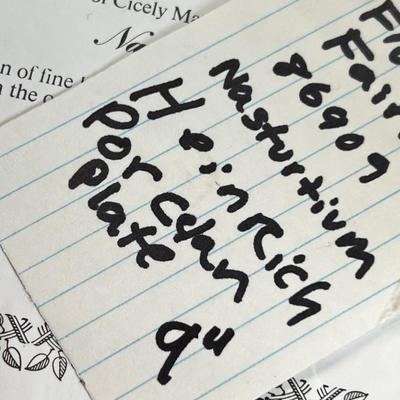 of Cicely Ma
Na
on of fine
n the o
Flo
Fair
86909
Nasturtium
Heinrich
Porcelan
Plate
9"